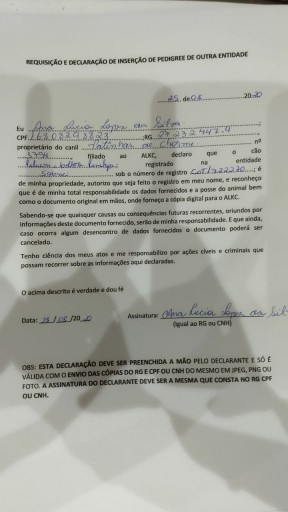 REQUISIÇÃO E DECLARAÇÃO DE INSERÇÃO DE PEDIGREE DE OUTRA ENTIDADE
25, de 05 2020
Eu Ana Lucia Lopes da Silva
CPF RG
proprietário do canil Patinhas de Charme nº
filiado ao ALKC, declaro que o cão
registrado na entidade
Sobraci sob o número de registro é
de minha propriedade, autorizo que seja feito o registro em meu nome, e reconheço
que é de minha total responsabilidade os dados fornecidos e a posse do animal bem
como o documento original em mãos, onde forneço a cópia digital para o ALKC.
Sabendo-se que quaisquer causas ou consequências futuras recorrentes, oriundos por
informações deste documento fornecido, serão de minha responsabilidade. E que ainda,
caso ocorra algum desencontro de dados fornecidos o documento poderá ser
cancelado.
Tenho ciência dos meus atos e me responsabilizo por ações cíveis e criminais que
possam recorrer sobre as informações aqui declaradas.
O acima descrito é verdade e dou fé
Data: 25/05/2020 Assinatura: Ana Lucia Lopes da Sil
(Igual ao RG ou CNH)
OBS: ESTA DECLARAÇÃO DEVE SER PREENCHIDA A MÃO PELO DECLARANTE E SÓ É
VÁLIDA COM O ENVIO DAS CÓPIAS DO RG E CPF OU CNH DO MESMO EM JPEG, PNG OU
FOTO. A ASSINATURA DO DECLARANTE DEVE SER A MESMA QUE CONSTA NO RG CPF
OU CNH.